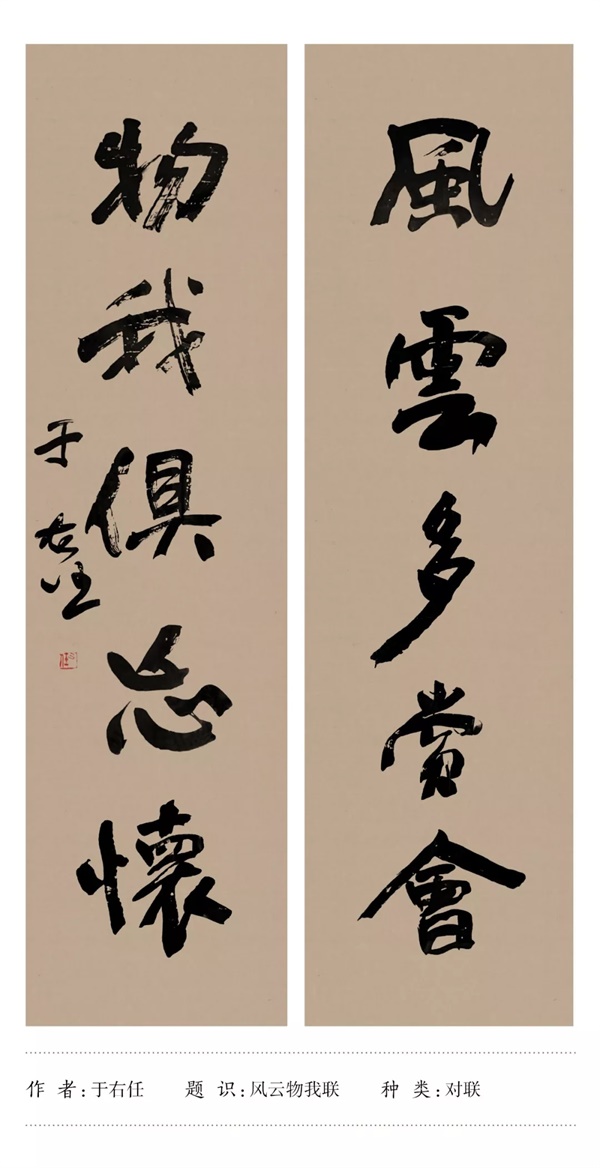 風雲多賞會
物我俱忘懷
于右任
作者:于右任 题识:风云物我联 种类:对联